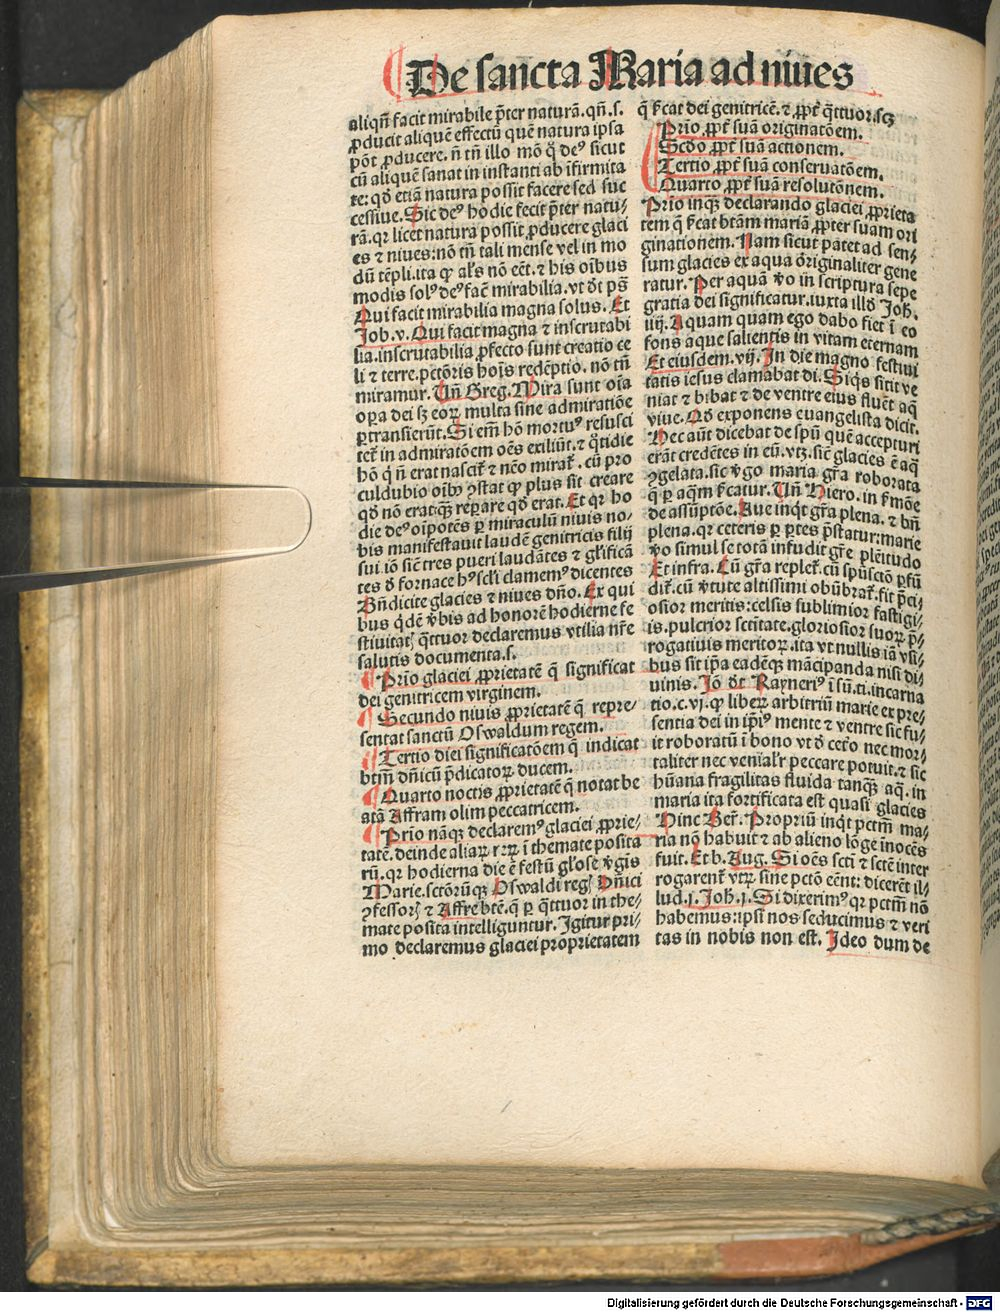 De sancta Maria ad niues
aliqñ facit mirabile p̄ter naturā.qñ.s.
ꝓducit aliquē effectū quē natura ipsa
pōt ꝓducere.ñ tñ illo mō q̊ deꝰ sicut
cū aliquē sanat in instanti ab īfirmita
te: qđ etiā natura possit facere sed suc
cessiue.Sic deꝰ hodie fecit p̄ter natu⸗
rā.qꝛ licet natura possit ꝓducere glaci
es ⁊ niues:nō tñ tali mense vel in mo
dū tēpli.ita ꝙ al̓s nō eēt.⁊ his oībus
modis solꝰ deꝰ fac̄ mirabilia.vt dr̄ pš
Qui facit mirabilia magna solus. Et
Job.v. Qui facit magna ⁊ inscrutabi
lia.inscrutabilia ꝓfecto sunt creatio ce
li ⁊ terre.pctōris hoīs redēptio. nō tñ
miramur. Vñ Greg. Mira sunt oīa
oꝑa dei sꝫ eoꝝ multa sine admiratiōe
ꝑtransierūt.Si em̄ hō mortuꝰ resusci
tet̄ in admiratōem oēs exiliūt.⁊ q̊tidie
hō q̇ ñ erat nascit̄ ⁊ nēo mirat̄ . cū pro
culdubio oībꝫ ꝯstat ꝙ plus sit creare
qđ nō erat:qꝫ reꝑare qđ erat. Et qꝛ ho
die deꝰ oīpotēs ꝑ miraculū niuis no⸗
bis manifestauit laudē genitricis filij
sui.iō sic̄ tres pueri laudātes ⁊ gl̓ificā
tes đ fornace hꝰ scl̓i clamemꝰ dicentes
Bñdicite glacies ⁊ niues dño. Ex qui
bus q̇dē v̓bis ad honorē hodierne fe
stiuitatꝭ q̄ttuor declaremus vtilia nr̄e
salutis documenta.s.
¶ Prīo glaciei ꝓprietatē q̄ significat
dei genitricem virginem.
¶ Secundo niuis ꝓprietatē q̄ repre⸗
sentat sanctū Oswaldum regem.
¶ Tertio diei significatōem q̄ indicat
btm̄ dñicū p̄dicatoꝝ ducem.
¶ Quarto noctis ꝓprietatē q̄ notat be
atā Affram olim peccatricem.
¶ Prīo nāqꝫ declaremꝰ glaciei ꝓprie⸗
tatē.deinde aliaꝝ rꝝ ī themate posita
rū.qꝛ hodierna die ē festū gl̓ose v̓gis
Marie.sctōrūqꝫ Oswaldi regꝭ Dñici
ꝯfessorꝭ ⁊ Affre btē.q̄ ꝑ q̄ttuor in the⸗
mate posita intelliguntur. Igitur pri⸗
mo declaremus glaciei proprietatem
q̄ ſ̓cat dei genitricē.⁊ ꝓpt̄ q̄ttuor.scꝫ
Prīo ꝓpt̄ suā originatōem.
Scđo ꝓpt̄ suā actionem.
Tertio ꝓpt̄ suā conseruatōem.
Quarto ꝓpt̄ suā resolutōnem.
Prīo inqꝫ declarando glaciei ꝓprieta
tem q̄ ſ̓cat btām mariā ꝓpter suam ori
ginationem. Nam sicut patet ad sen⸗
sum glacies ex aqua originaliter gene
ratur. Per aquā v̓o in scriptura sepe
gratia dei significatur.iuxta illđ Joh̄.
iiij. Aquam quam ego dabo fiet ī eo
fons aque salientis in vitam eternam
Et eiusdem.vij. In die magno festiui
tatis iesus clamabat di. Siq̇s sitit ve
niat ⁊ bibat ⁊ de ventre eius fluēt aq̄
viue. Qđ exponens euangelista dicit.
Hec aūt dicebat de spū quē accepturi
erāt credētes in eū.vtꝫ.sic̄ glacies ē aq̄
ꝯgelata.sic v̓go maria gr̄a roborata
q̄ ꝑ aq̄m ſ̓catur. Vñ Hiero. in s̓mōe
de assūptōe. Aue inqt gr̄a plena. ⁊ bñ
plena.qꝛ ceteris ꝑ ꝑtes p̄statur:marie
v̓o simul se totā infudit gr̄e plētitudo
Et infra. Cū gr̄a replet̄.cū spūsctō ꝑfū
dit̄.cū v̓tute altissimi obūbrat̄.fit p̄ci⸗
osior meritis:celsis sublimior fastigi⸗
is.pulcrior sctītate.gloriosior suoꝝ p̄⸗
rogatiuis meritoꝝ.ita vt nullis iā vsi⸗
bus sit ip̄a eadēqꝫ mācipanda nisi di⸗
uinis. Iō dr̄ Rayneriꝰ ī sū.ti.incarna
tio.c.vj.ꝙ liberꝝ arbitriū marie ex pre⸗
sentia dei in ip̄iꝰ mente ⁊ ventre sic fu⸗
it roboratū ī bono vt đ cet̓o nec mor⸗
taliter nec venial̓r peccare potuit.⁊ sic
hūana fragilitas fluida tanqꝫ aq̄. in
maria ita fortificata est quasi glacies
Hinc Ber̄. Propriū inqt pctm̄ ma⸗
ria nō habuit ⁊ ab alieno lōge inocēs
fuit. Et b. Aug. Si oēs scti ⁊ sctē inter
rogarent̄ vtꝝ sine pctō eēnt: dicerēt il⸗
lud.j. Joh̄.j. Si dixerimꝰ qꝛ pctm̄ nō
habemus:ipsi nos seducimus ⁊ veri
tas in nobis non est. Ideo dum de
Digitalisierung gefördert durch die Deutsche Forschungsgemeinschaft - DFG